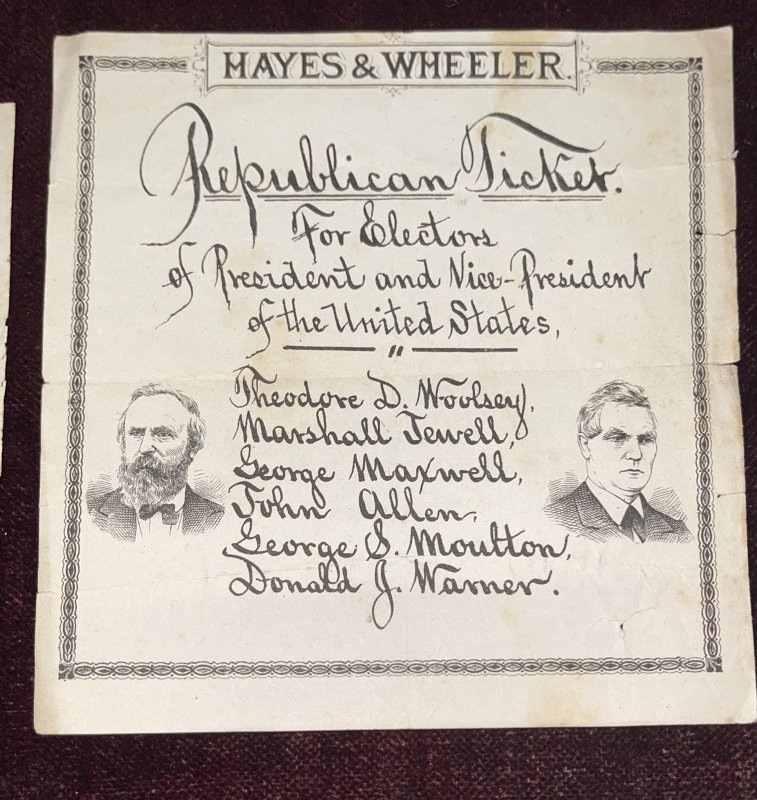 HAYES & WHEELER.
Republican Ticket.
For Electors
of President and Vice-President
of the United States,
Theodore D. Woolsey,
Marshall Jewell,
George Maxwell,
John Allen,
George S. Moulton,
Donald J. Warner.